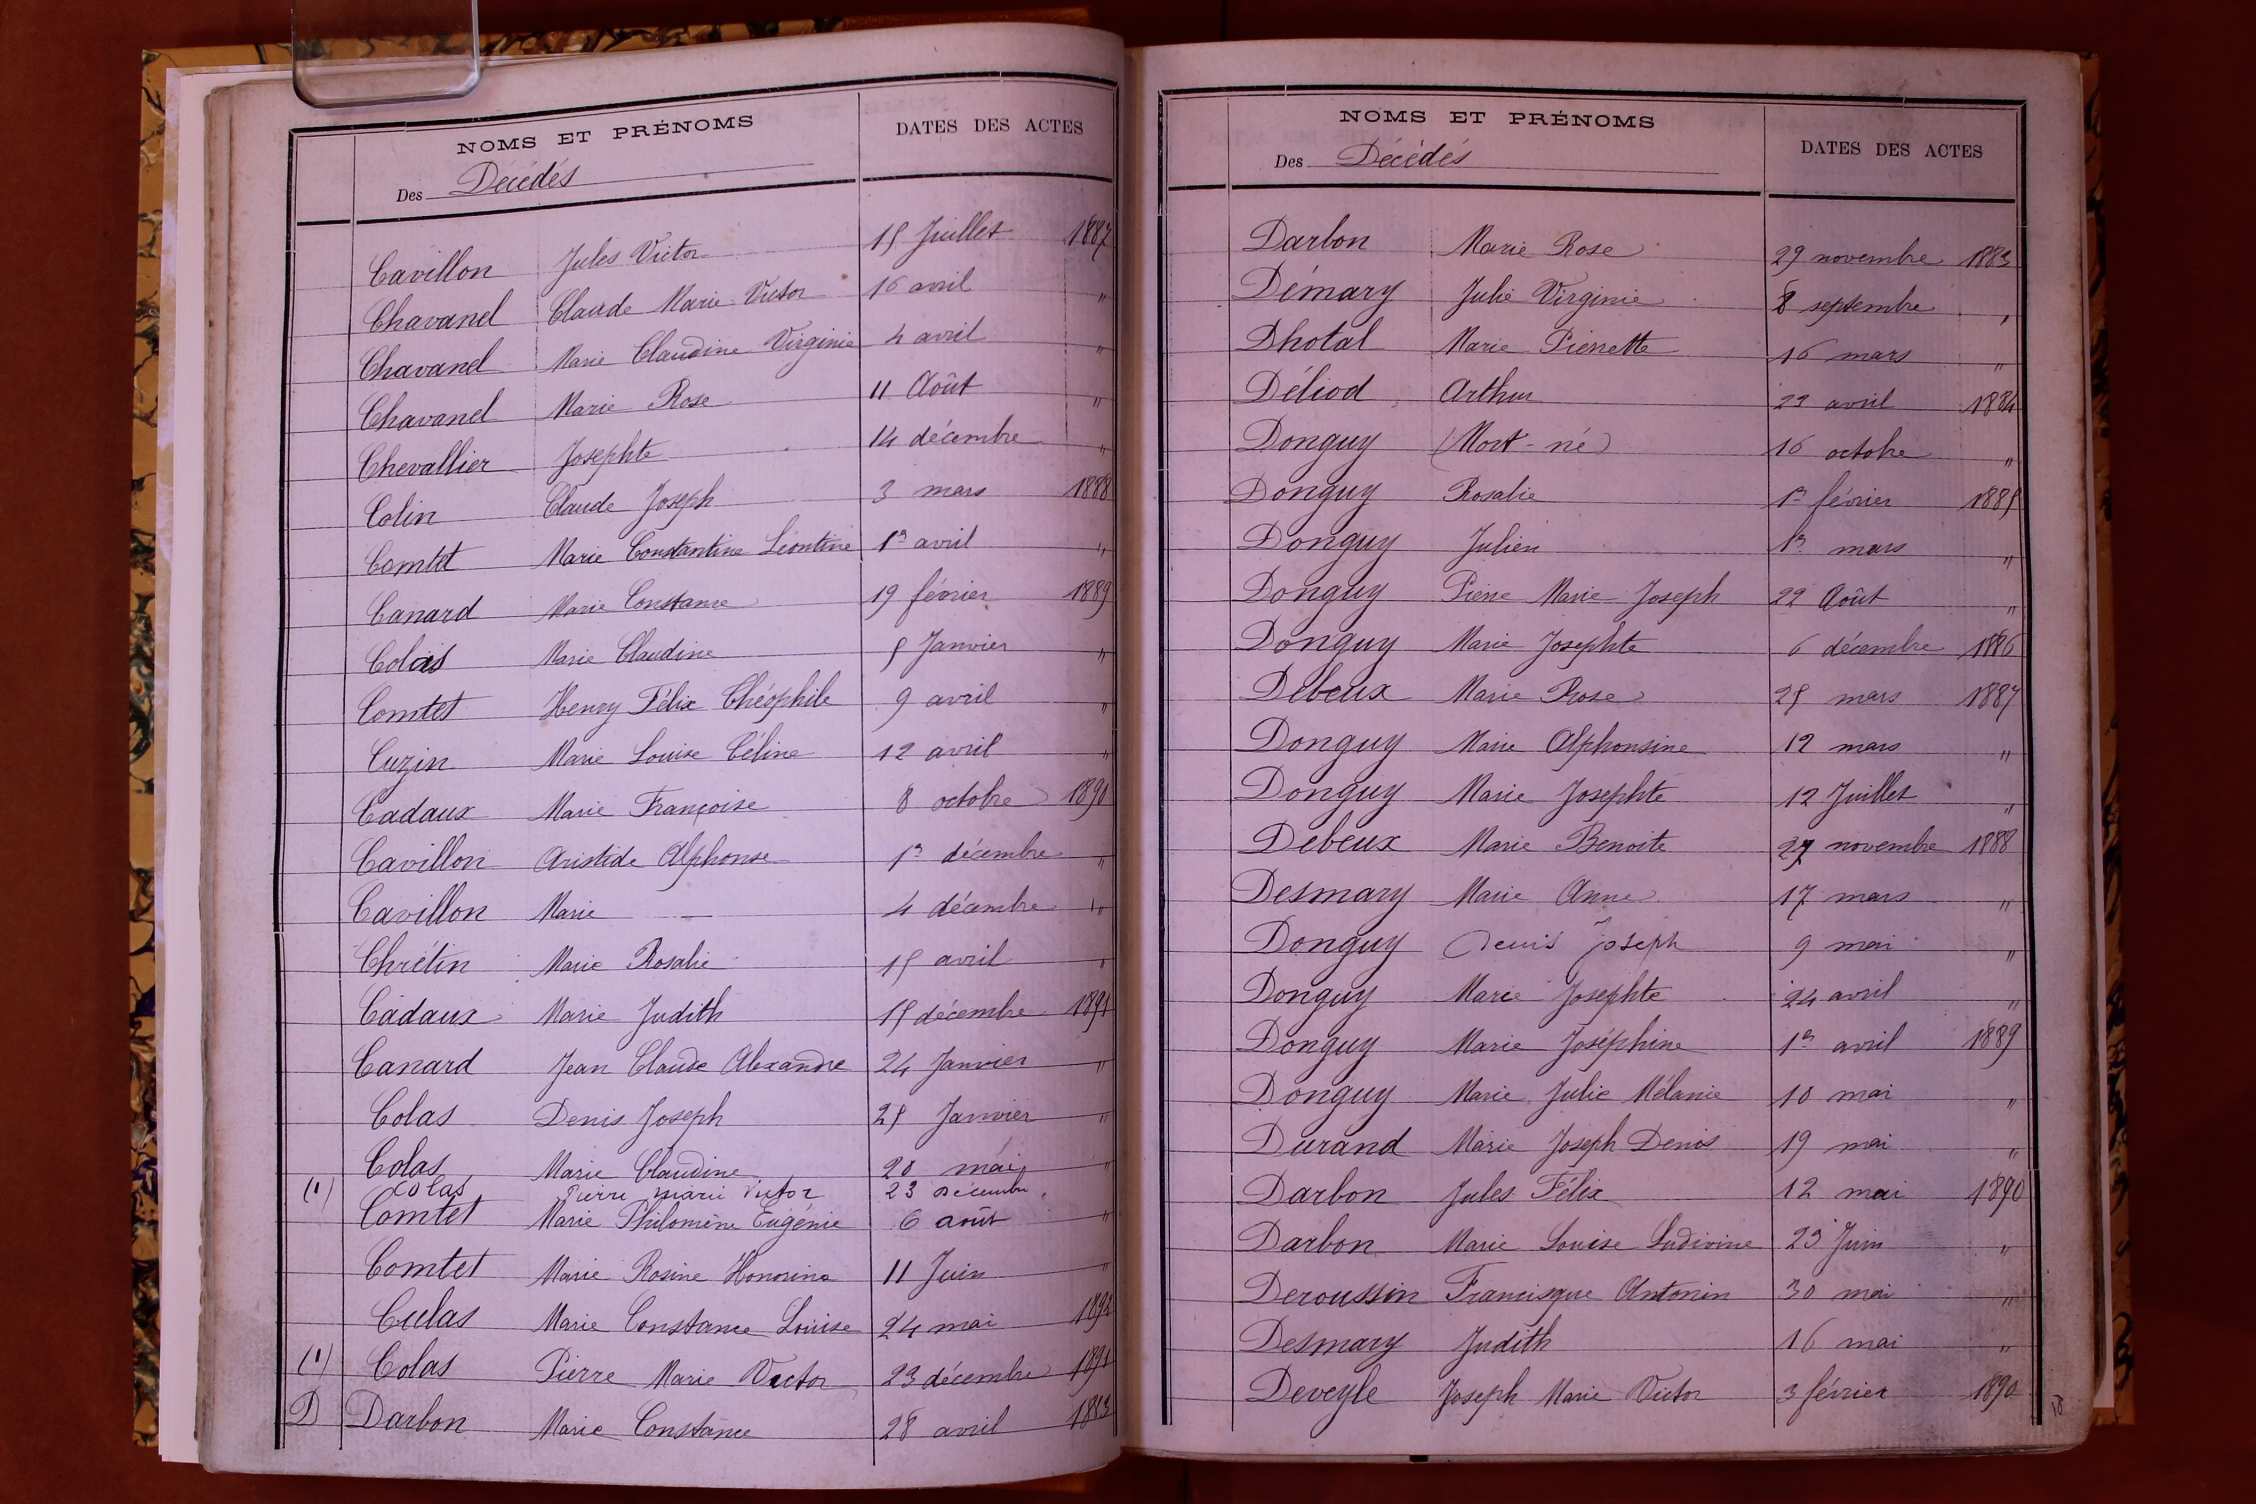 NOMS ET PRÉNOMS DATES DES ACTES
Des Décédés
Cavillon Jules Victor 15 Juillet 1887
Chavanel Claude Marie Victor 16 avril "
Chavanel Marie Claudine Virginie 4 avril "
Chavanel Marie Rose 11 Août "
Chevallier Josephte 14 décembre "
Colin Claude Joseph 3 mars 1888
Comtet Marie Constantine Léontine 1er avril "
Canard Marie Constance 19 février 1889
Colas Marie Claudine 5 Janvier "
Comtet Henry Félix Théophile 9 avril "
Cuzin Marie Louise Céline 12 avril "
Cadaux Marie Françoise 8 octobre 1890
Cavillon Aristide Alphonse 1er décembre "
Cavillon Marie 4 décembre "
Chrétin Marie Rosalie 15 avril "
Cadaux Marie Judith 15 décembre 1891
Canard Jean Claude Alexandre 24 Janvier "
Colas Denis Joseph 25 Janvier "
Colas Marie Claudine 20 mai "
(1) Colas Pierre Marie Victor 23 Décembre "
Comtet Marie Philomène Eugénie 6 août "
Comtet Marie Rosine Honorine 11 Juin "
Culas Marie Constance Louise 24 mai 1892
(1) Colas Pierre Marie Victor 23 décembre 1891
D Darbon Marie Constance 28 avril 1883
NOMS ET PRÉNOMS DATES DES ACTES
Des Décédés
Darbon Marie Rose 29 novembre 1883
Démary Julie Virginie 8 septembre "
Dhotal Marie Pierrette 16 mars "
Déliod Arthur 23 avril 1884
Donguy (Mort-né) 16 octobre "
Donguy Rosalie 1er février 1885
Donguy Julien 1er mars "
Donguy Pierre Marie Joseph 22 Août "
Donguy Marie Josephte 6 décembre 1886
Debeux Marie Rose 25 mars 1887
Donguy Marie Alphonsine 12 mars "
Donguy Marie Josephte 12 Juillet "
Debeux Marie Benoite 27 novembre 1888
Desmary Marie Anne 17 mars "
Donguy Denis Joseph 9 mai "
Donguy Marie Josephte 24 avril "
Donguy Marie Joséphine 1er avril 1889
Donguy Marie Julie Mélanie 10 mai "
Durand Marie Joseph Denis 19 mai "
Darbon Jules Félix 12 mai 1890
Darbon Marie Louise Ludivine 23 Juin "
Deroussin Francisque Antonin 30 mai "
Desmary Judith 16 mai "
Deveyle Joseph Marie Victor 3 février 1890
18